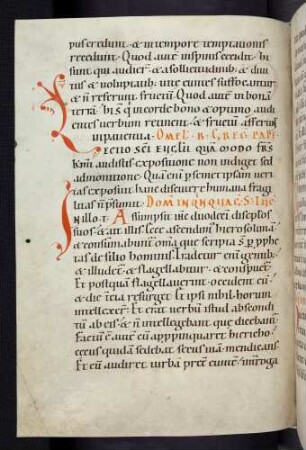 pus credunt. & in tempore temptationis
recedunt. Quod aut̄ in spinis cecidit. hi
sunt qui audier̄. & a sollicitudinib. & divi
tiis & voluptatib. vite euntes suffocantur.
& n̄ referunt fructū. Quod aut̄ in bonā
terrā. hi s̄ qui corde bono & optimo audi
entes verbum retinent. & fructū afferunt
in patientia. OMEL. B. GREG. PAPE
Lectio sc̄i evg̅lii quā modo fr̄s
k̄mi audistis expositione non indiget sed
admonitione. Quam enī p semetipsam veri
tas exposuit. hanc discutere humana fragi
litas n̄ presumit. DOM IN QNQUAG. S. LUC
In illo t. Assumpsit ih̄c duodeci discipłos
suos. & ait illis. Ecce ascendim hierosolimā.
& consumabunt̄ omīa que scripta s̄ p pphe
tas de filio hominis. Tradetur enī gentib.
& illudet̄. & flagellabitur. & conspuet̄.
Et postquā flagellaverint. occident eū.
& die tercia resurget. Et ipsi nihil horum
intellexer̄. Et erat verbū istud abscondi
tū ab eis. & n̄ intellegebant que dicebant̄.
Factū ē aut̄ cū appropinquaret hiericho.
cecus quidā sedebat secus viā. mendicans.
Et cū audiret turbā pret eunte. int̄roga